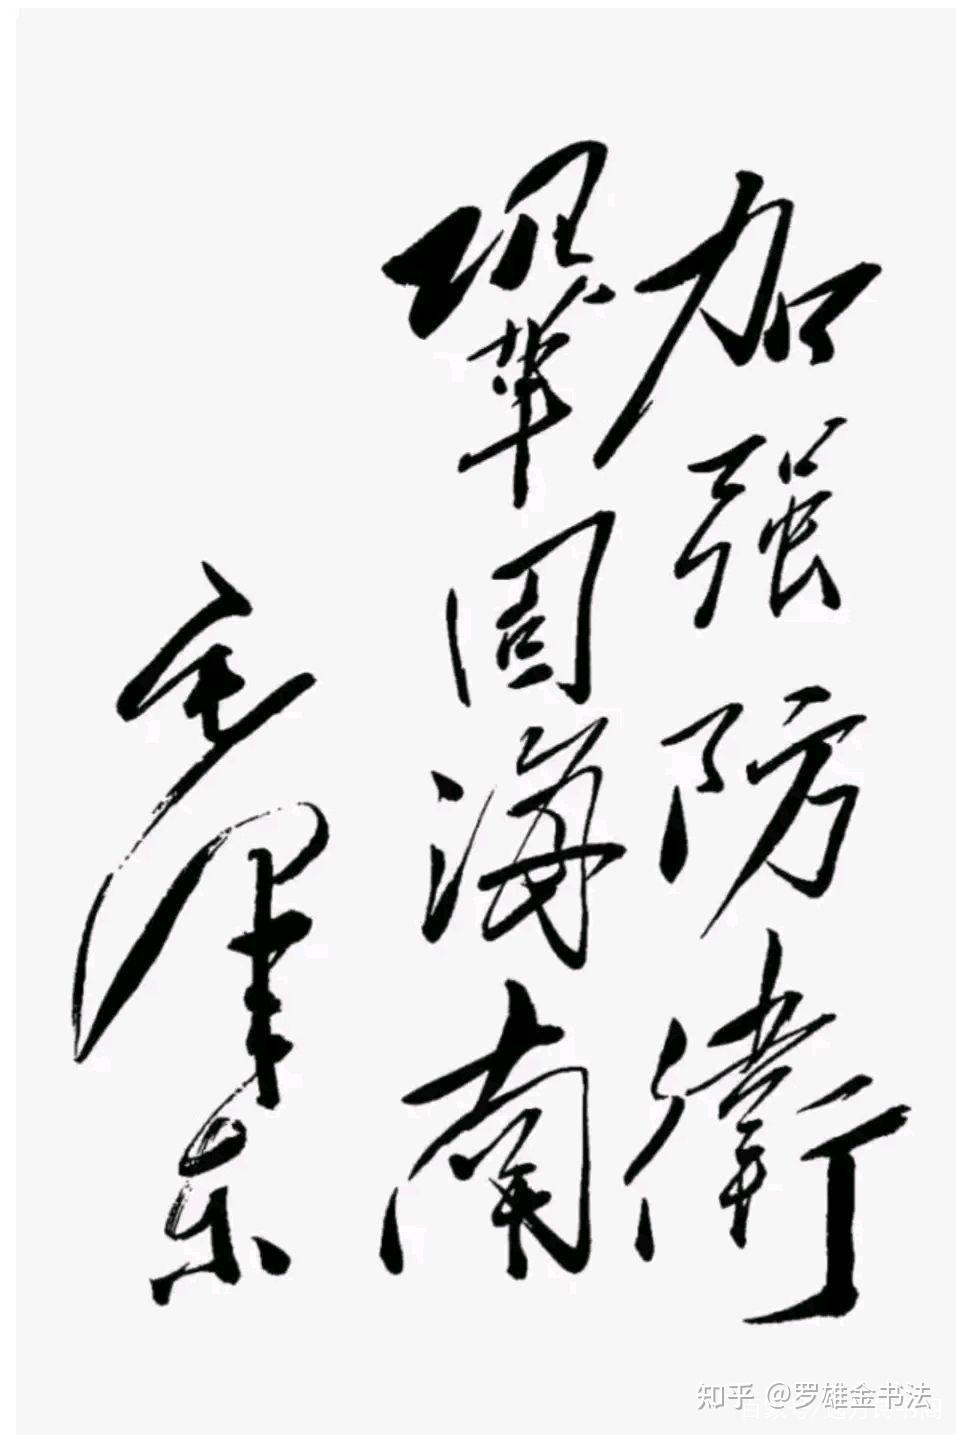 加强防衛
鞏固海南
毛泽东
知乎 @罗雄金书法